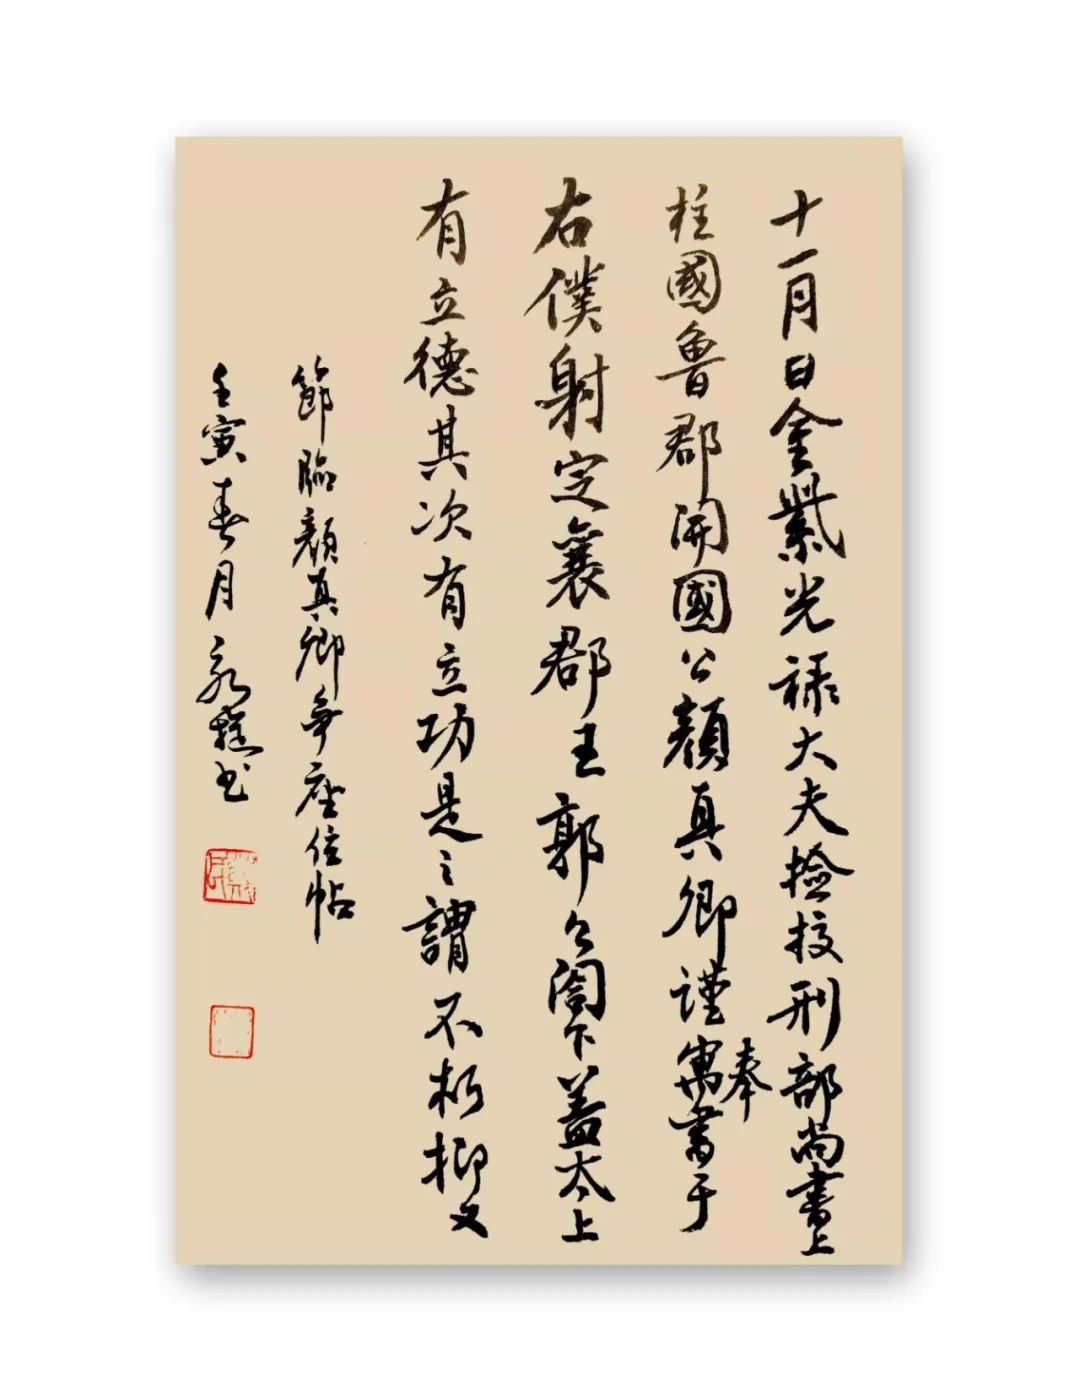 十一月日金紫光禄大夫撿挍刑部尚書上
柱國魯郡開國公顔真卿謹寓書于
奉
右僕射定襄郡王郭公閤下蓋太上
有立德其次有立功是之謂不朽抑又
節臨顔真卿争座位帖
壬寅春月永书